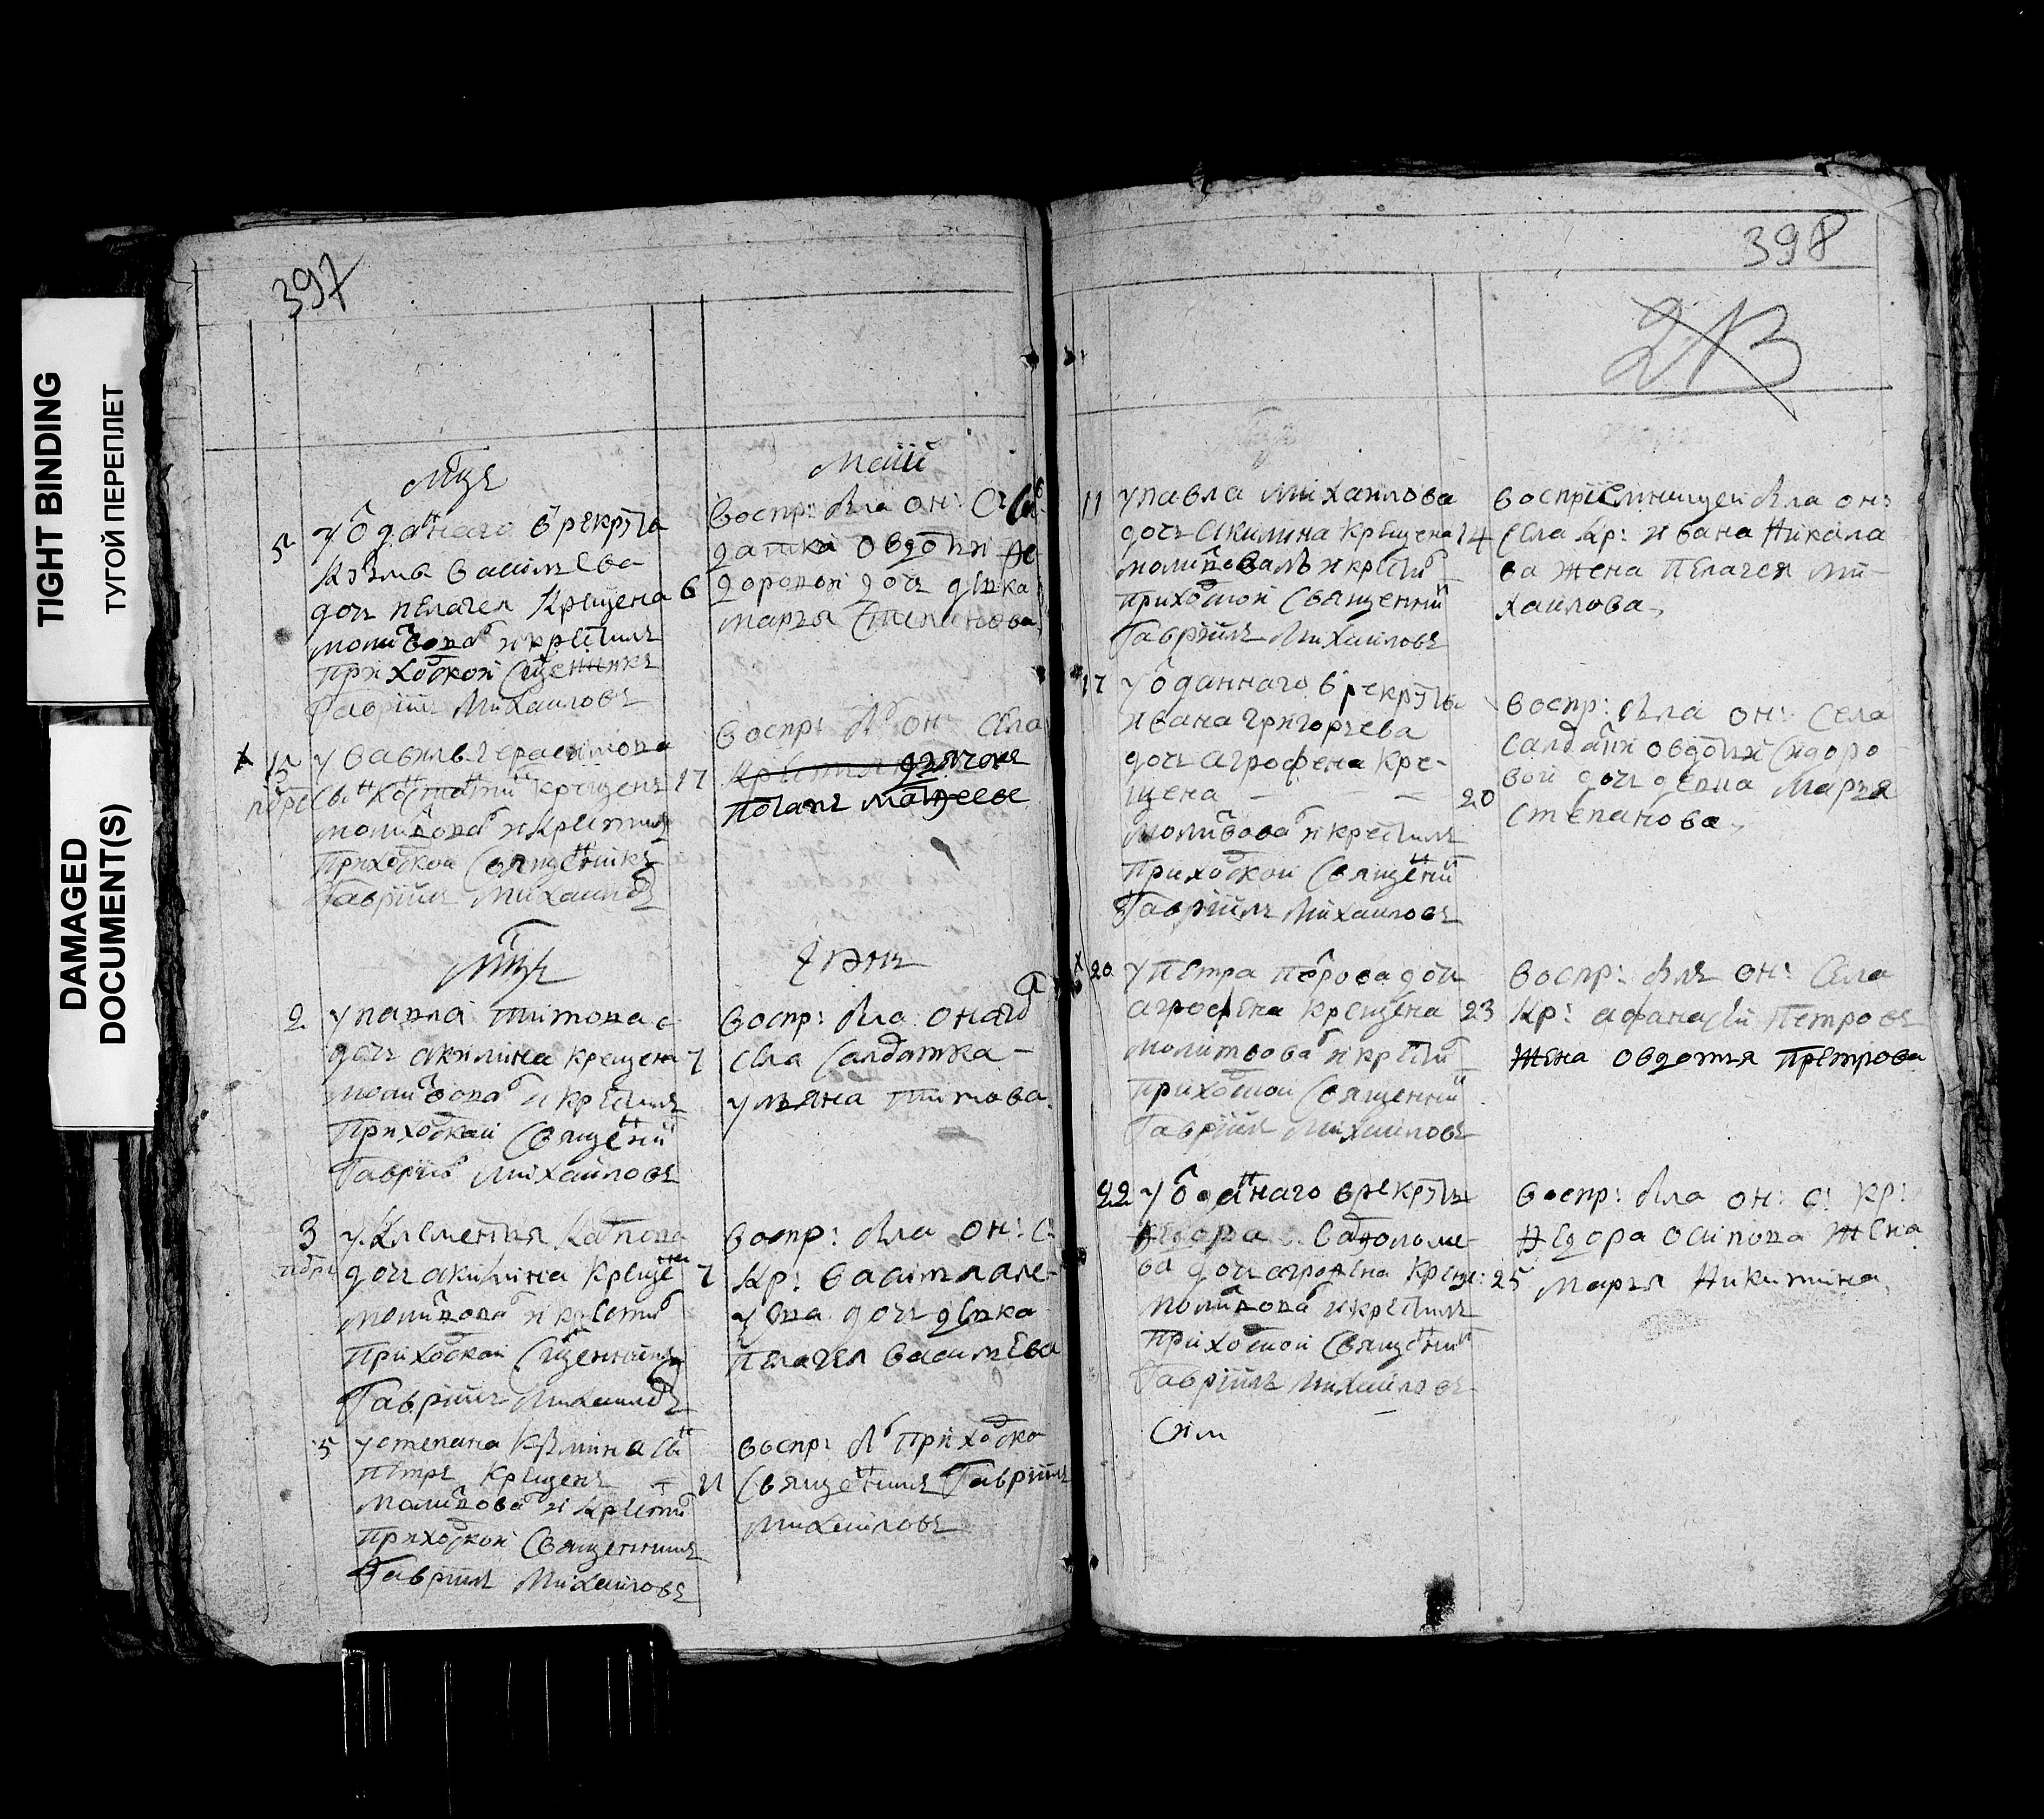 TIGHT BINDING
ТУГОЙ ПЕРЕПЛЕТ
DAMAGED
DOCUMENT(S)
397
мцъ
маій
5 у ѿданнаго в рекруты
козмы василева
дочь пелагея крещена 6
молитвова и крестилъ
приходской сщенникъ
гавріилъ михаиловъ
воспр: была он: с
датки овдоти
доровой дочь девка
марья степанова
15 у вавилы герасимова
крещенъ 17
молитвова и крестилъ
приходской священникъ
гавріилъ михаиловъ
воспр: бы он: села
дьячокъ
потапъ матвеевъ
мцъ
іюнь
2 у павла титова
дочь акилина крещена 7
молитвова и крестилъ
приходской священни
гавріи михайловъ
воспр: была онаго
села салдатка
ульяна титова
3 у клементия
дочь акилина крещенна 7
молитвова и крести
приходской сщенникъ
гавріилъ михаиловъ
воспр: была он: с:
кр: василья але
дочь девка
пелагея василева
5 у степана козмина сынъ
петръ крещенъ 11
молитвова и крести
приходской священникъ
гавріилъ михайловъ
воспр: бы приходско
священникъ гавріилъ
михайловъ
398
213
11 у павла михаилова
дочь акилина крещена 14
молитвовалъ и крести
приходской священни
гавріилъ михаиловъ
воспріемницей была он:
села кр: ивана никола
ва жена пелагея ми
хаилова
17 у ѿданнаго в рекруты
ивана григорьева
дочь агрофена кре
щена 20
молитвова и крестилъ
приходской священни
гавріилъ михаиловъ
воспр: была он: села
салдатки овдотьи сидоро
вой дочь девка марья
степанова
20 у петра дочь
агрофена крещена 23
молитвова и крести
приходской священни
гавріилъ михаиловъ
воспр: была он: села
кр: афанасьи петровъ
жена овдотья петрова
22 у ѿданнаго в рекруты
ѳедора
ва дочь агрофена креще: 25
молитвова и крестилъ
приходской священни
гавріилъ михаиловъ
воспр: была он: с: кр:
ѳедора осипова жена
марья никитина